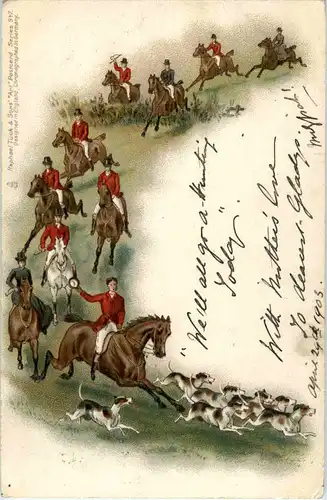 Raphael Tuck & Sons' "Art" Postcard. Series 957.
Designed in England. Chromographed in Germany.
"We'll all go a-Hunting
Today"
With Mother's love
To dearest Gladys.
April 20th 1903.